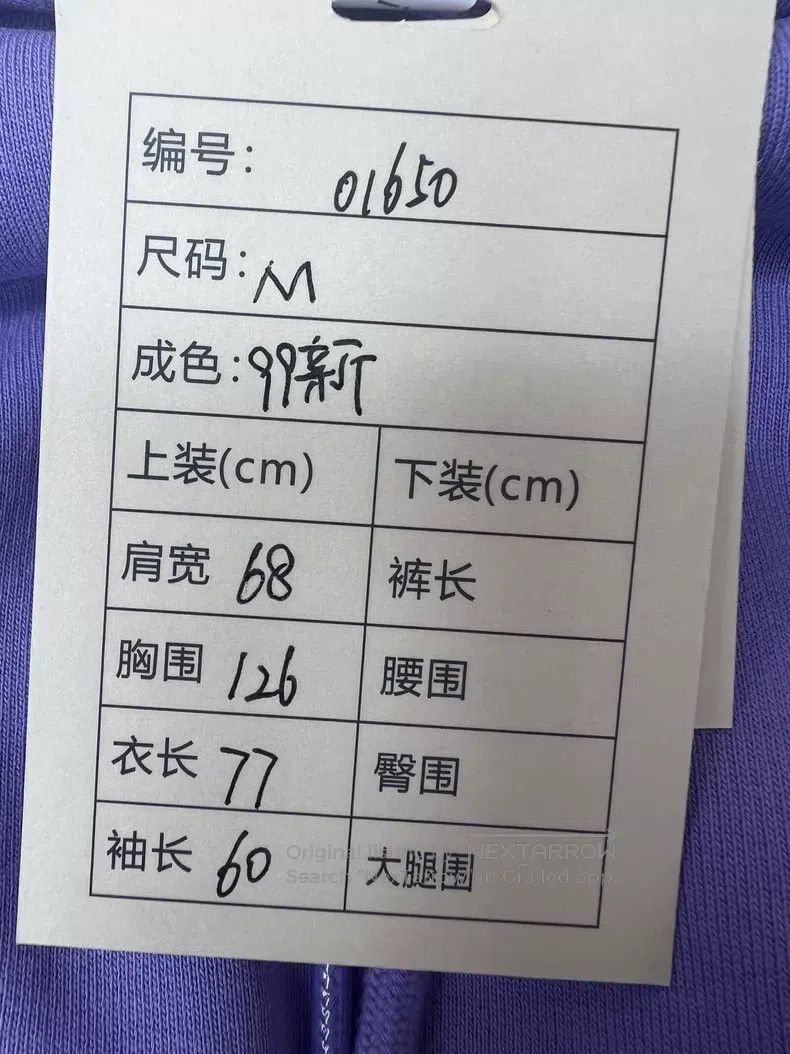 编号: 01650
尺码: M
成色: 99新
上装(cm) 下装(cm)
肩宽 68 裤长
胸围 126 腰围
衣长 77 臀围
袖长 60 大腿围
NEXTARROW
in Grailed app.